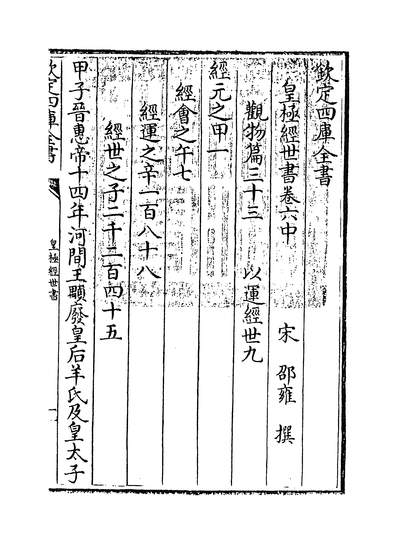 欽定四庫全書
皇極經世書卷六中
宋　邵雍　撰
觀物篇三十三　以運經世九
經元之甲一
經會之午七
經運之辛一百八十八
經世之子二千二百四十五
甲子晉惠帝十四年河間王顒廢皇后羊氏及皇太子
欽定四庫全書
皇極經世書
一